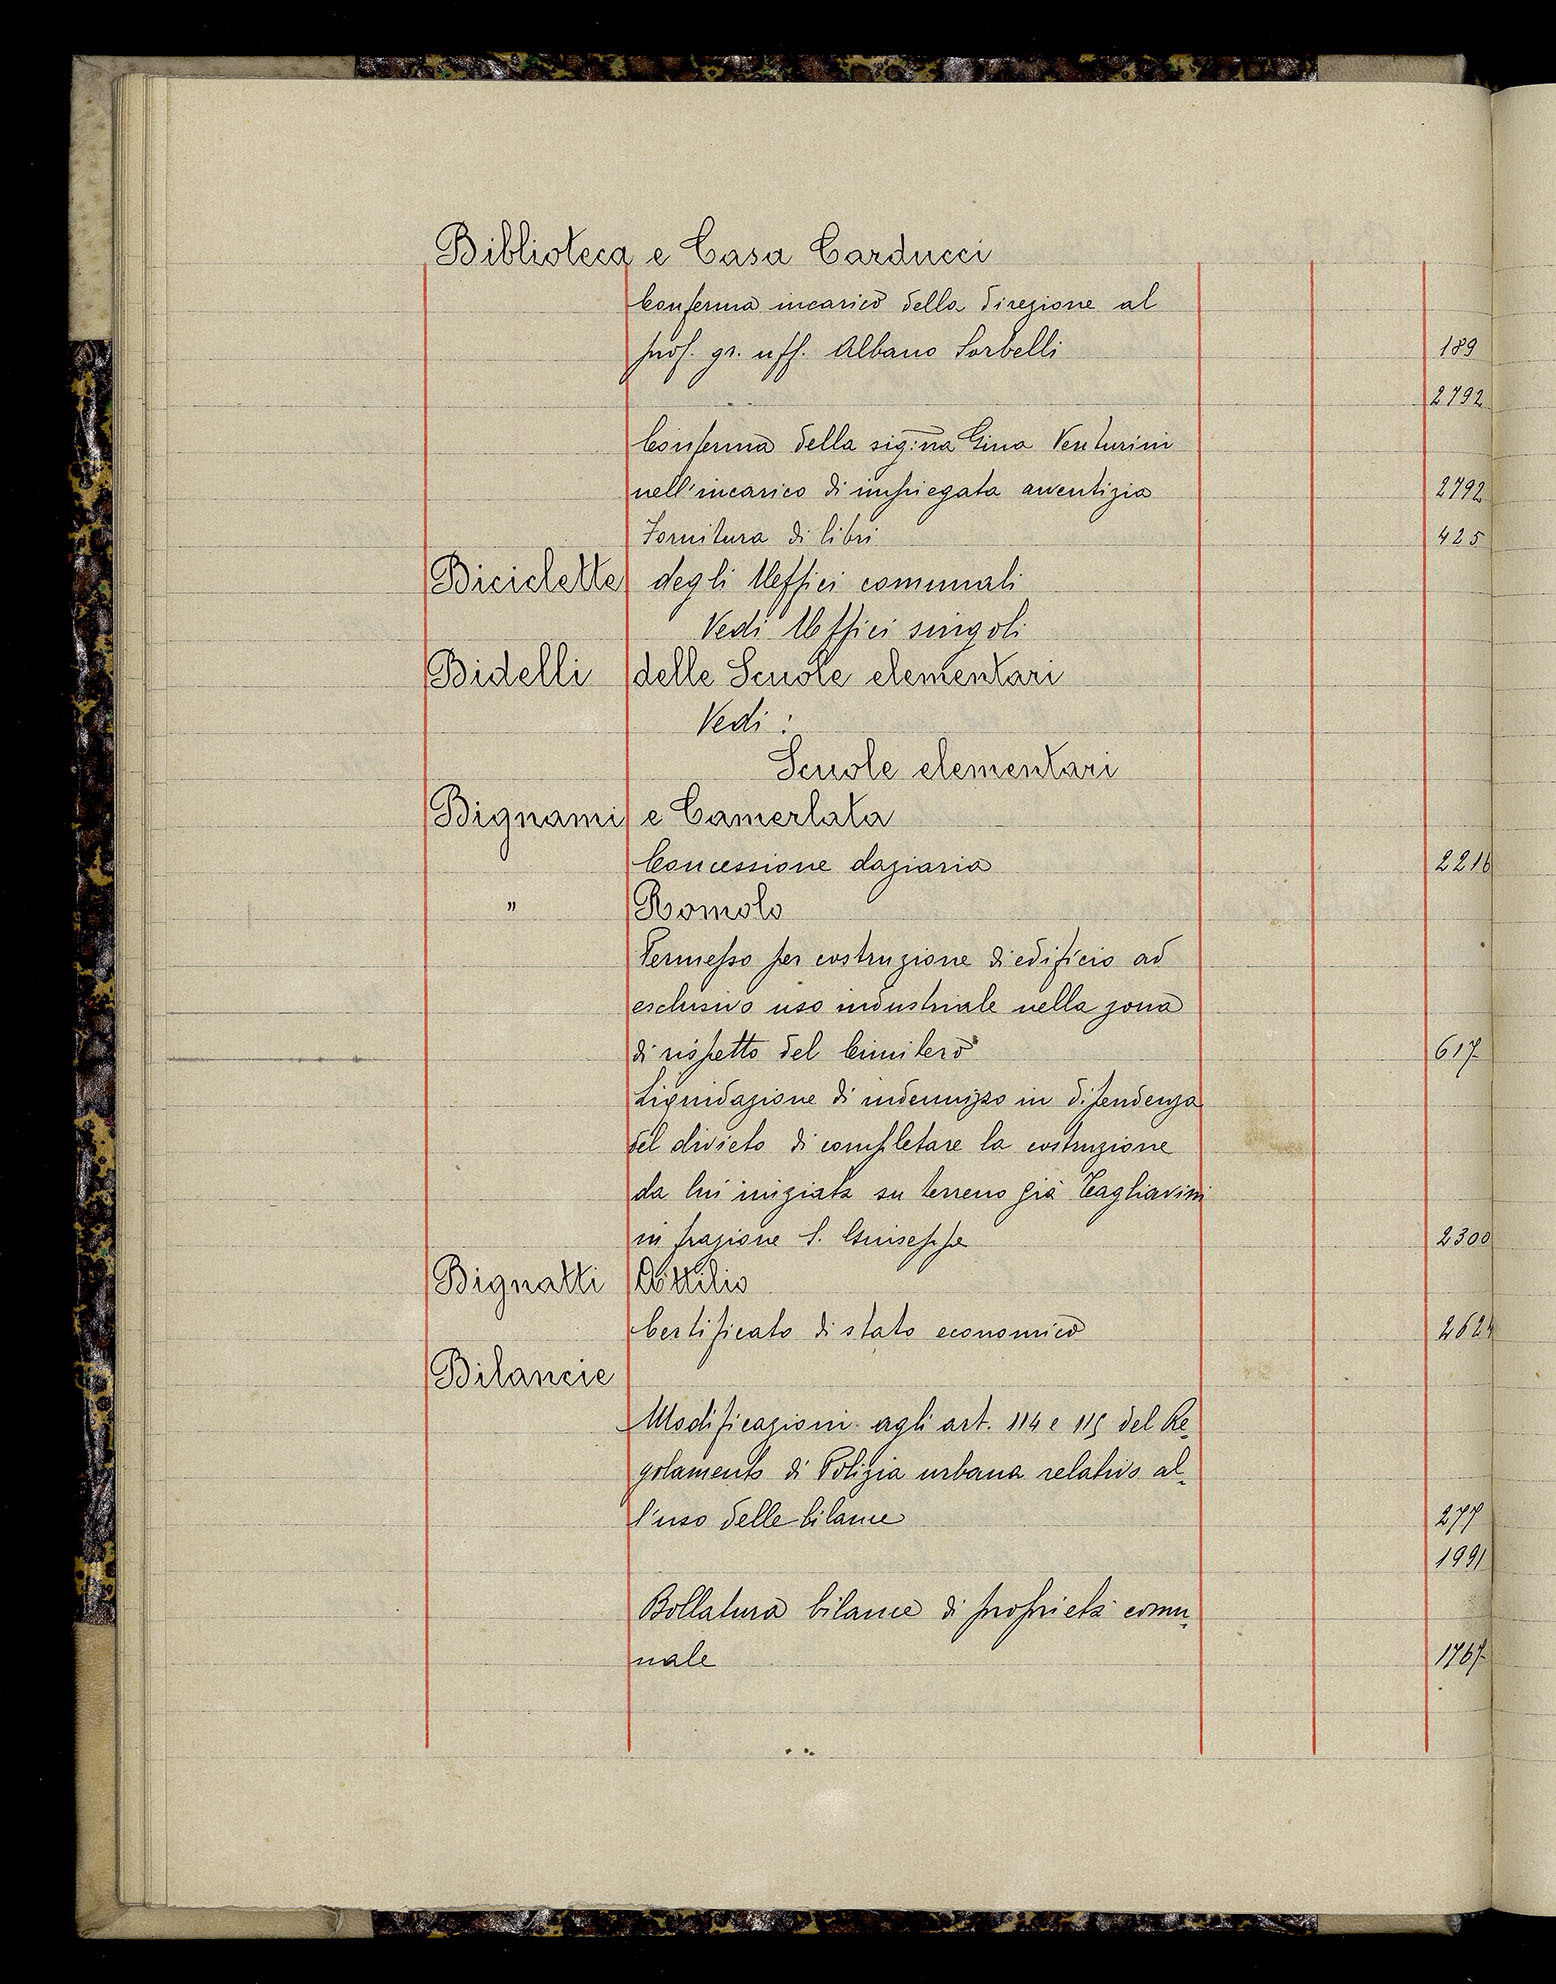 Biblioteca e Casa Carducci
Conferma incarico della direzione al
prof. gr. uff. Albano Sorbelli 189
2792
Conferma della sig:na Gina Venturini
nell'incarico di impiegata avventizia 2792
Fornitura di libri 425
Biciclette degli Uffici comunali
Vedi Uffici singoli
Bidelli delle Scuole elementari
Vedi :
Scuole elementari
Bignami e Camerlata
Concessione daziaria 2216
" Romolo
Permesso per costruzione di edificio ad
esclusivo uso industriale nella zona
di rispetto del Cimitero 617
Liquidazione di indennizzo in dipendenza
del divieto di completare la costruzione
da lui iniziata su terreno già Tagliavini
in frazione S. Giuseppe 2300
Bignatti Attilio
Certificato di stato economico 2624
Bilancie
Modificazioni agli art. 114 e 115 del Re-
golamento di Polizia urbana relativo al-
l'uso delle bilance 277
1991
Bollatura bilance di proprietà comu-
nale 1767